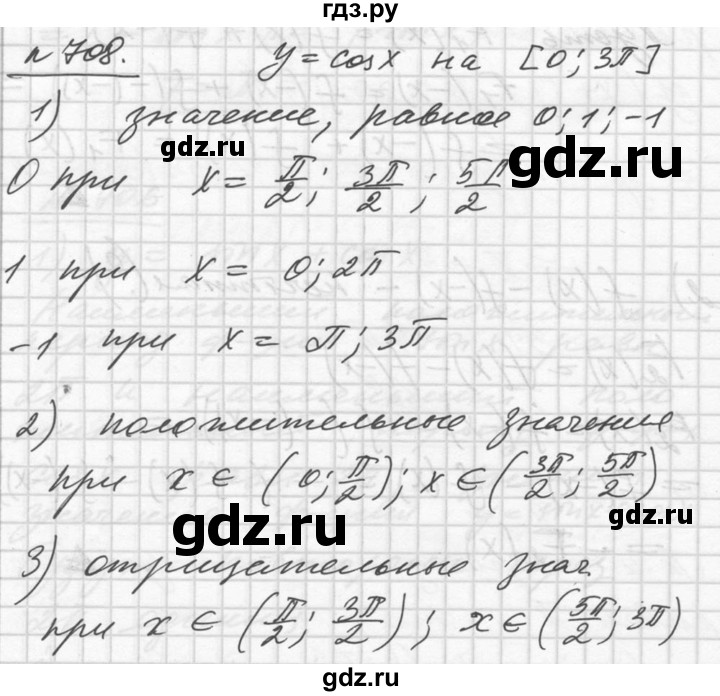 гдз.ру
n 708. y = cos x на [0; 3π]
1) значение, равное 0; 1; -1
gdz.ru gdz.ru
0 при x = π/2; 3π/2; 5π/2
1 при x = 0; 2π
-1 при x = π; 3π
2) положительные значения
при x ∈ (0; π/2); x ∈ (3π/2; 5π/2)
gdz.ru
3) отрицательные знач.
gdz.ru
при x ∈ (π/2; 3π/2); x ∈ (5π/2; 3π)
gdz.ru